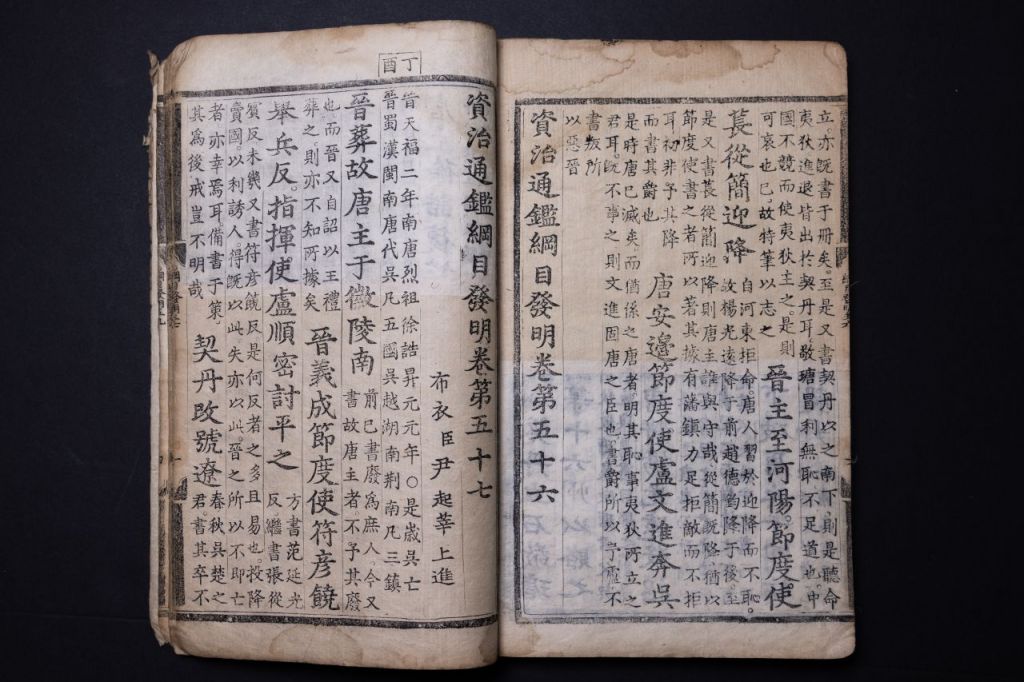 立亦既書于冊矣。至是又書契丹以之南下則是聽命
夷狄進退皆出於契丹耳敬瑭冒利無恥不足道也中
國不競而使夷狄主之。是則
可哀也已。故特筆以志之
晉主至河陽節度使
萇從簡迎降
自河東拒命唐人習於迎降而不恥。
故楊光遠降于前趙德鈞降于後至
是又書萇從簡迎降則唐主誰與守哉從簡既降猶以
節度使書之者所以著其據有藩鎮力足拒敵而不拒
耳初非予其降
而書其爵也
唐安邊節度使盧文進奔吳
是時唐已滅矣而猶係之唐者明其恥事夷狄所立之
君耳既不事之則文進固唐之臣也書爵所以予盧不
書叛所
以惡晉
資治通鑑綱目發明卷第五十六
丁酉
資治通鑑綱目發明卷第五十七
布衣臣尹起莘上進
晉天福二年南唐烈祖徐誥昇元元年〇是歲吳亡
晉蜀漢閩南唐代吳凡五國吳越湖南荆南凡三鎮
晉葬故唐主于徽陵南
前已書廢爲庶人。今又
書故唐主者。不予其廢
也而晉又自詔以王禮
葬之。則亦不知所據矣
晉義成節度使符彥饒
舉兵反。指揮使盧順密討平之
方書范延光
反繼書張從
賓反未幾又書符彥饒反是何反者之多且易也。投降
賣國。以利誘人。得既以此。失亦以此。晉之所以不即亡
者亦幸焉耳備書于策。
其爲後戒豈不明哉
契丹改號遼
春秋吳楚之
君書其卒不